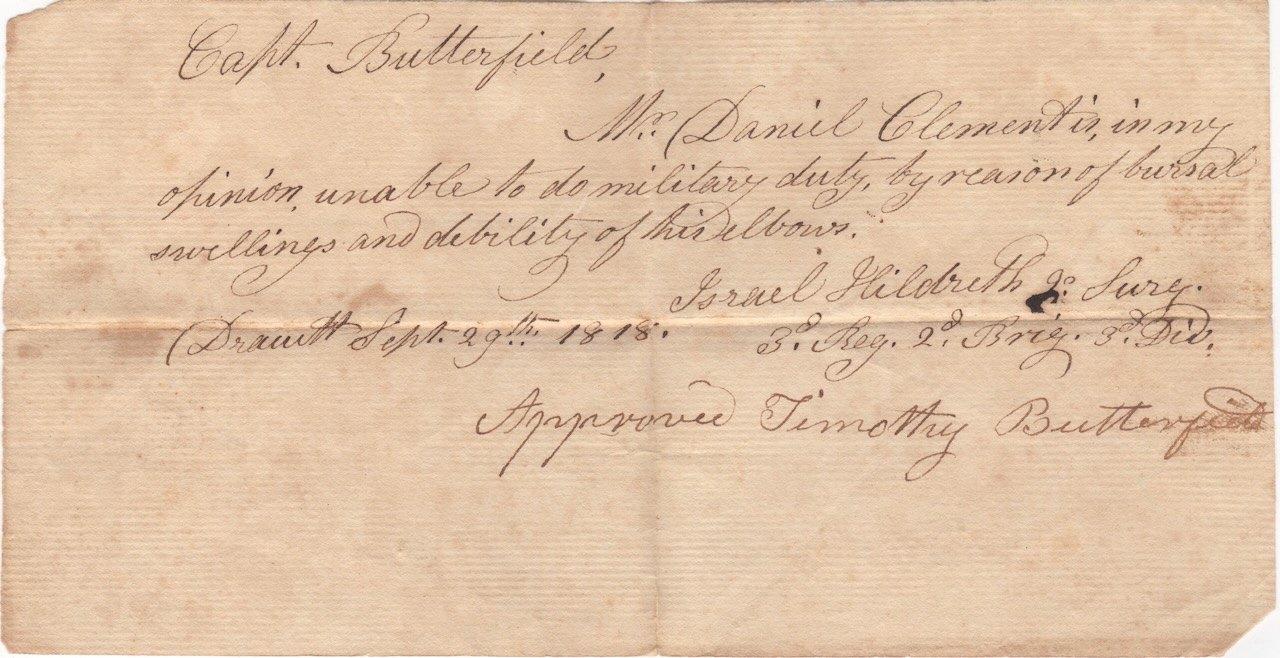 Capt. Butterfield,
Mr. Daniel Clement is, in my
opinion, unable to do military duty, by reason of bursal
swellings and debility of his elbows.
Israel Hildreth Surg.
Dracutt Sept. 29th. 1818. 3d. Reg. 2d. Brig. 3d. Div.
Approved Timothy Butterfield